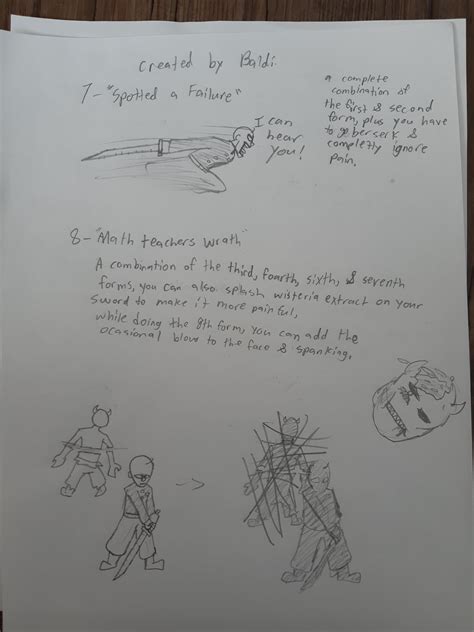 created by Baldi.
7- "Spotted a Failure"
I can
hear
you!
a complete
combination of
the first & second
form, plus you have
to go berserk &
completly ignore
pain.
8- "Math teachers wrath"
A combination of the third, fourth, sixth, & seventh
forms, you can also splash wisteria extract on your
sword to make it more painful,
while doing the 8th form, you can add the
ocasional blow to the face & spanking.